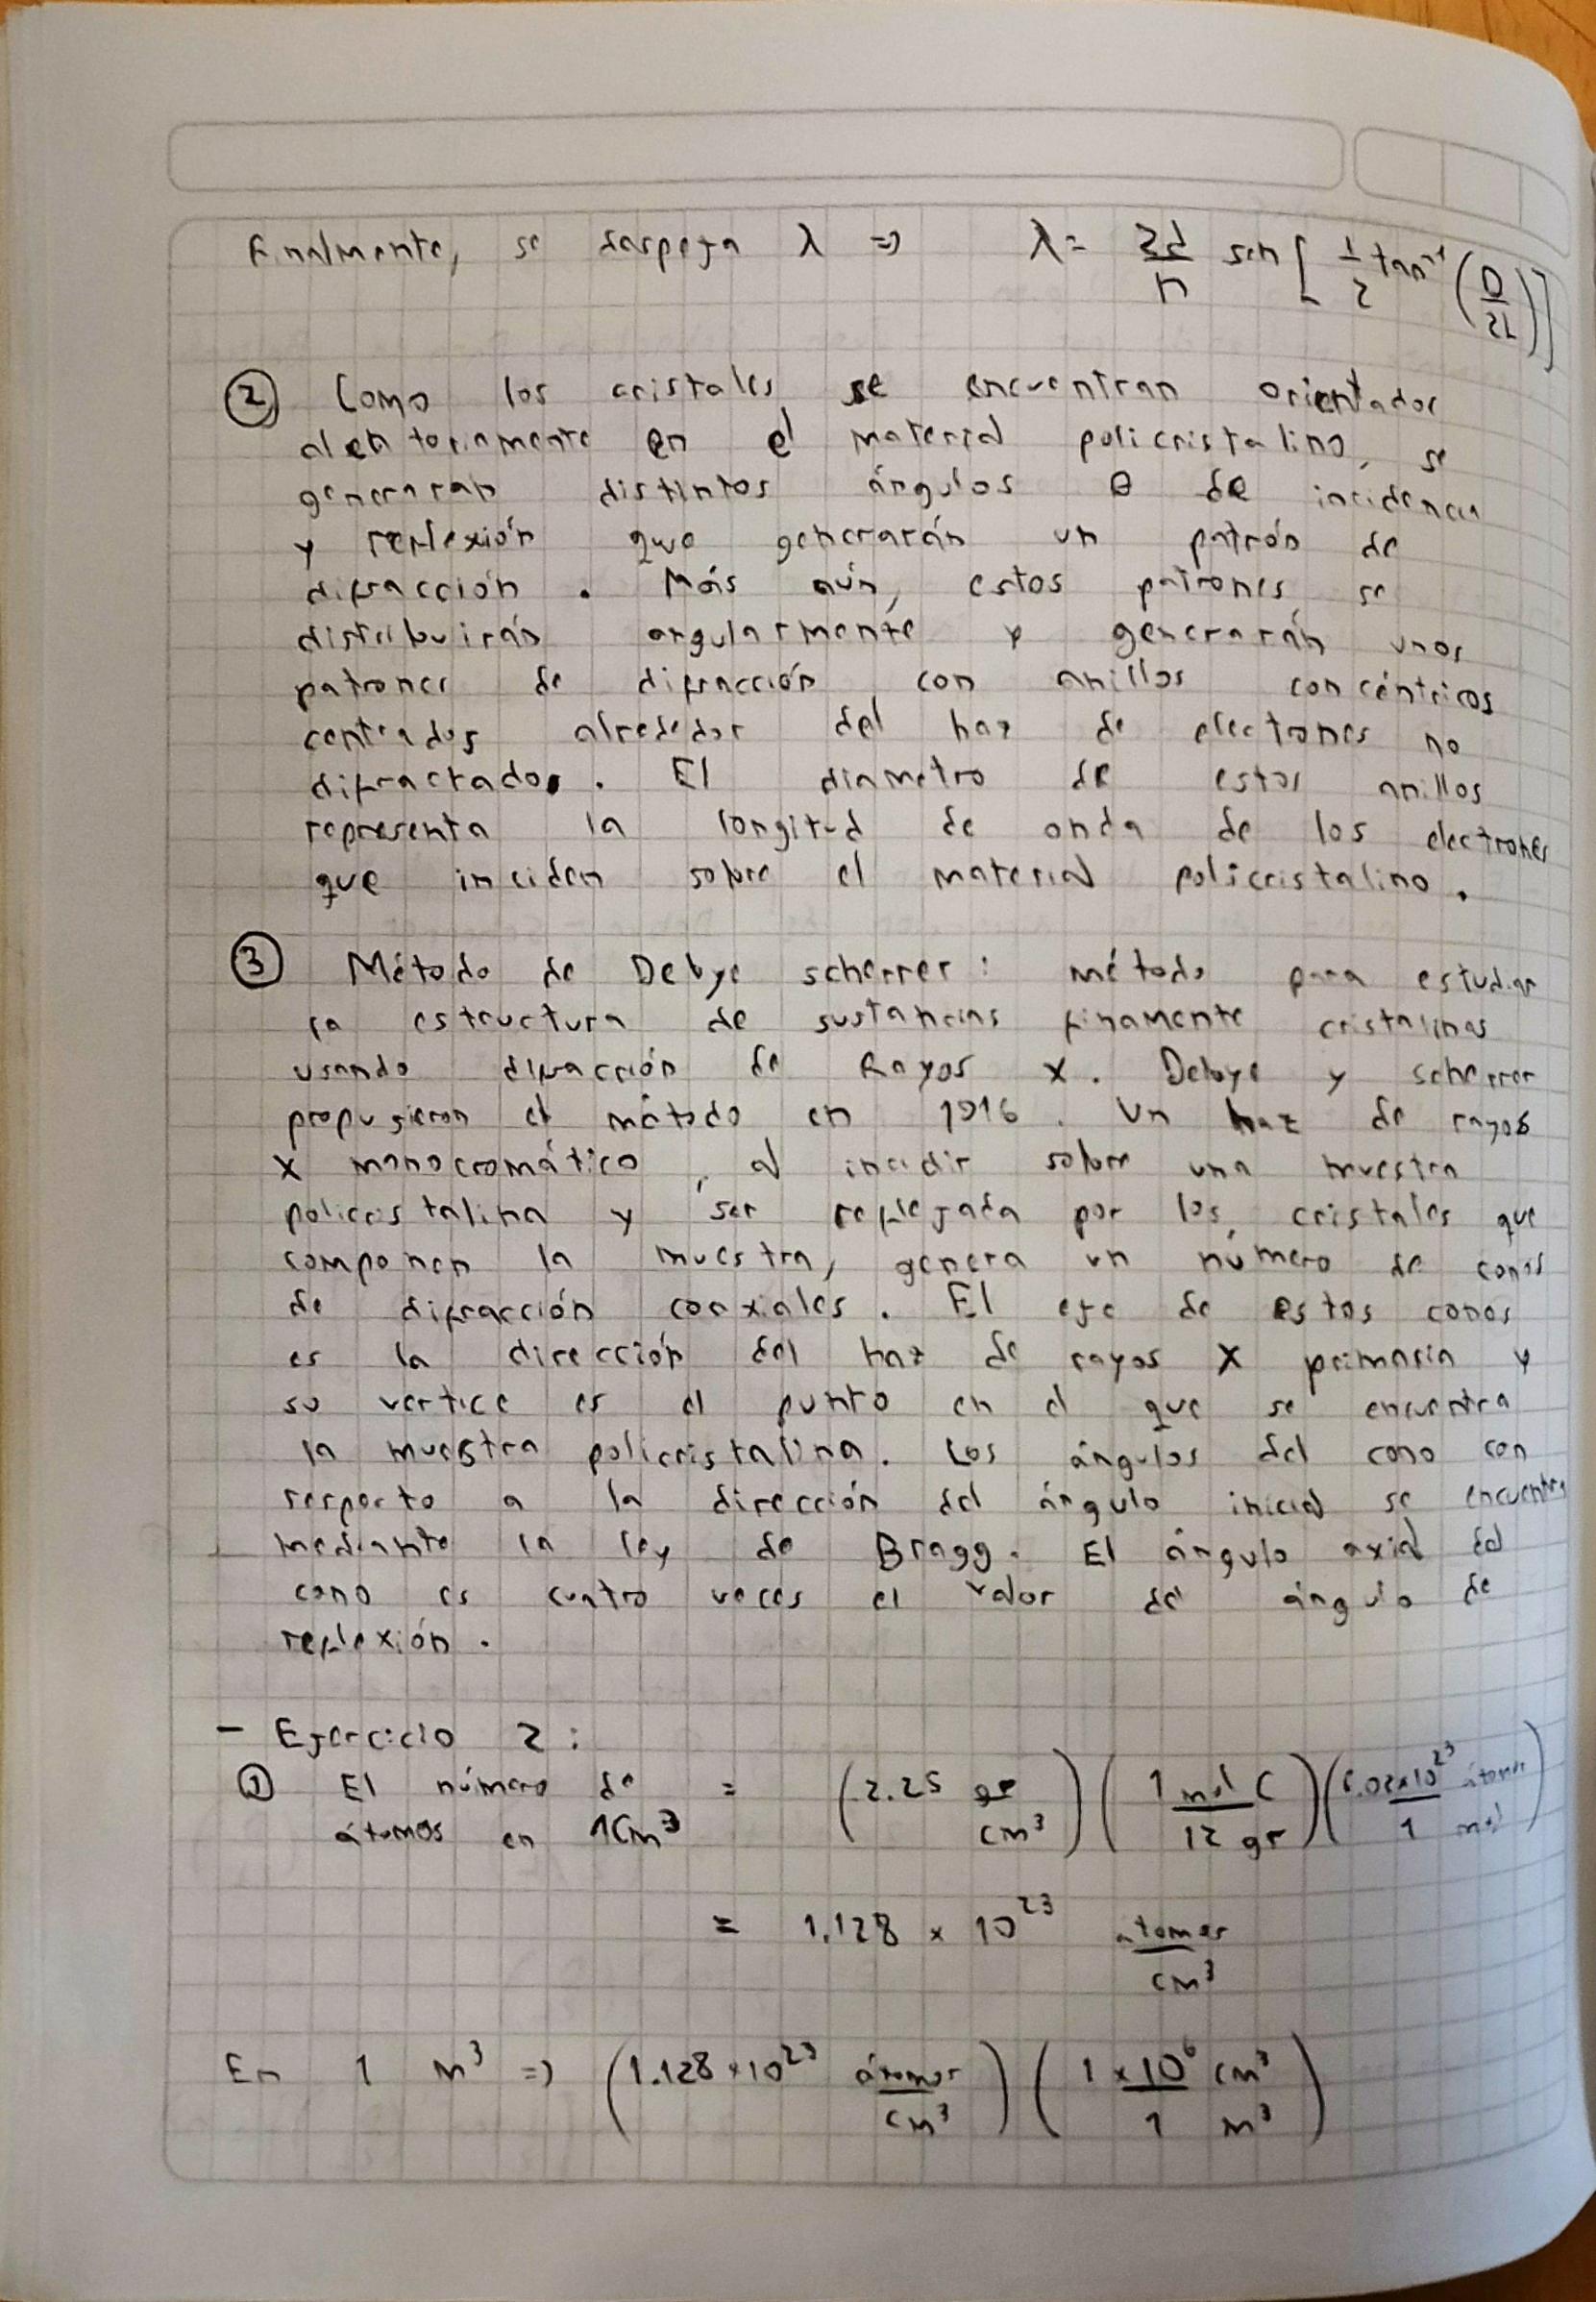 Finalmente, se despeja λ => λ = 2d/n sen[1/2 tan⁻¹(D/2L)]
② Como los cristales se encuentran orientados
aleatoriamente en el material policristalino, se
generaran distintos ángulos θ de incidencia
y reflexión que generarán un patrón de
difracción. Más aún, estos patrones se
distribuirán angularmente y generarán unos
patrones de difracción con anillos concéntricos
centrados alrededor del haz de electrones no
difractados. El diametro de estos anillos
representa la longitud de onda de los electrones
que inciden sobre el material policristalino.
③ Método de Debye scherrer: método para estudiar
la estructura de sustancias finamente cristalinas
usando difracción de Rayos X. Debye y scherrer
propusieron el método en 1916. Un haz de rayos
X monocromático, al incidir sobre una muestra
policristalina y ser reflejada por los cristales que
componen la muestra, genera un número de conos
de difracción coaxiales. El eje de estos conos
es la dirección del haz de rayos X primario y
su vertice es el punto en el que se encuentra
la muestra policristalina. Los ángulos del cono con
respecto a la dirección del ángulo inicial se encuentra
mediante la ley de Bragg. El ángulo axial del
cono es cuatro veces el valor del ángulo de
reflexión.
- Ejercicio 2:
① El número de átomos en 1cm³ = (2.25 gr/cm³)(1 mol C/12 gr)(6.02x10²³ átomos/1 mol)
= 1.128 x 10²³ atomos/cm³
En 1 m³ => (1.128 x 10²³ átomos/cm³)(1 x 10⁶ cm³/1 m³)